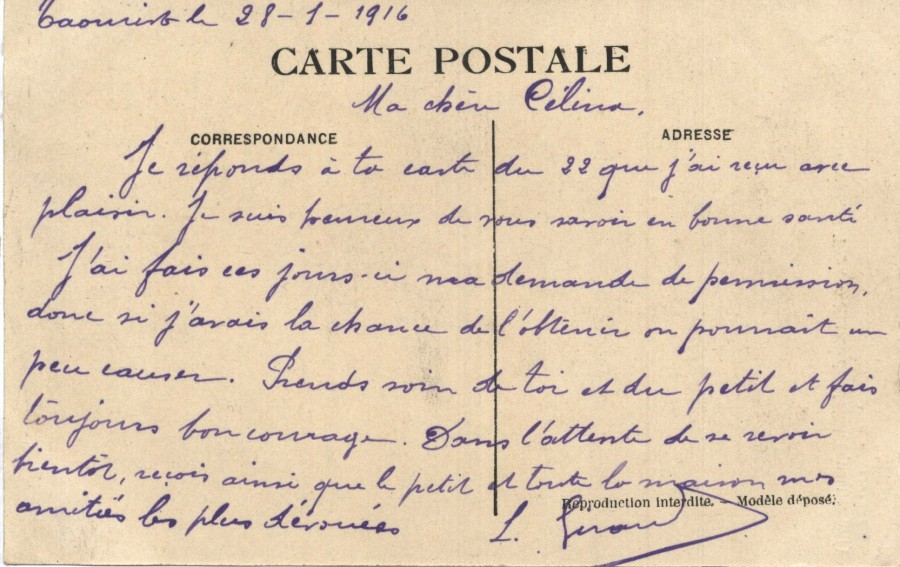 Taourirt le 28-1-1916
CARTE POSTALE
Ma chère Célina,
CORRESPONDANCE
ADRESSE
Je réponds à ta carte du 22 que j'ai reçu avec
plaisir. Je suis heureux de vous savoir en bonne santé
J'ai fais ces jours-ci ma demande de permission,
donc si j'avais la chance de l'obtenir on pourrait un
peu causer. Prends soin de toi et du petit et fais
toujours bon courage. Dans l'attente de se revoir
bientôt, reçois ainsi que le petit et toute la maison mes
Reproduction interdite. — Modèle déposé.
amitiés les plus dévouées L.